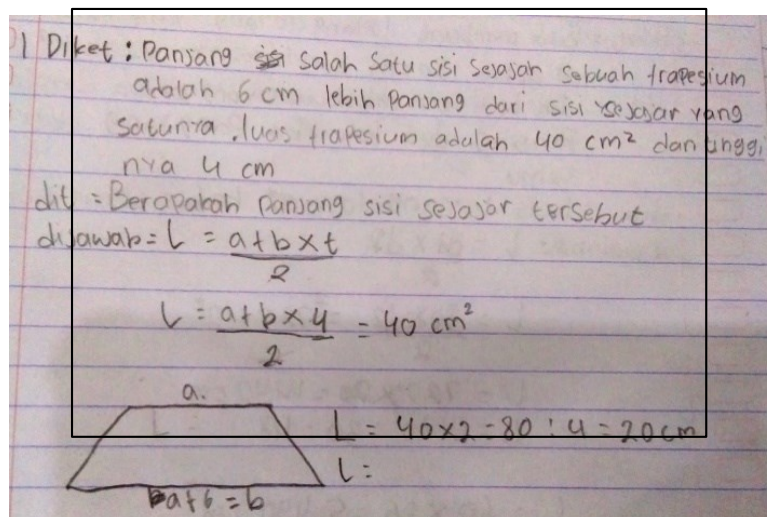 1 Diket : Panjang salah satu sisi sejajar sebuah trapesium
adalah 6 cm lebih panjang dari sisi sejajar yang
satunya . luas trapesium adalah 40 cm² dan tinggi
nya 4 cm
dit = Berapakah panjang sisi sejajar tersebut
dijawab = L = a+b×t
2
L = a+b×4 = 40 cm²
2
a.
L = 40×2 = 80 : 4 = 20 cm
L =
a+6 = b